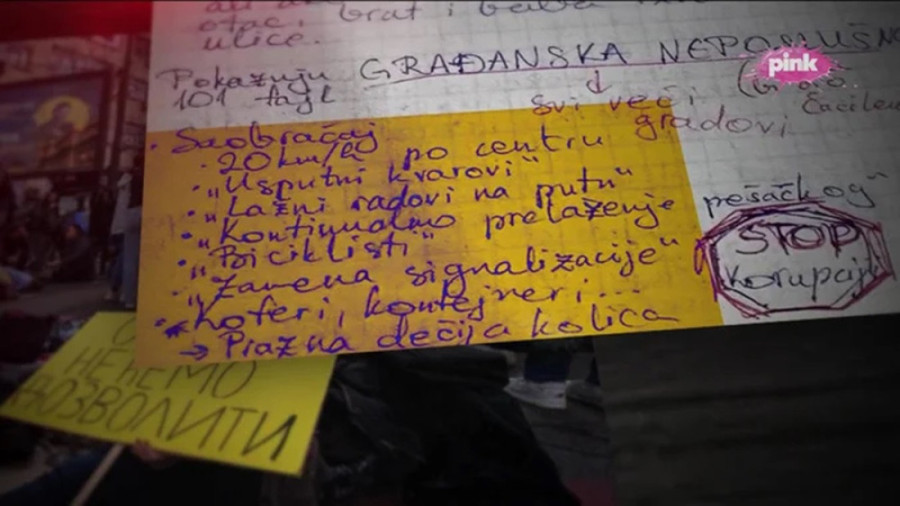 otac, brat i baba
ulice.
Pokazuju GRAĐANSKA NEPOSLUŠNO
pink
101 tajl
svi veći gradovi
• Saobraćaj
• 20 km/h po centru
• „Usputni kvarovi“
• „Lažni radovi na putu“
• „Kontinualno prelaženje pešačkog“
• „Biciklisti“
• „Zamena signalizacije“
STOP
korupciji
• Koferi, kontejneri...
→ Prazna dečija kolica
НЕЋЕМО
ДОЗВОЛИТИ